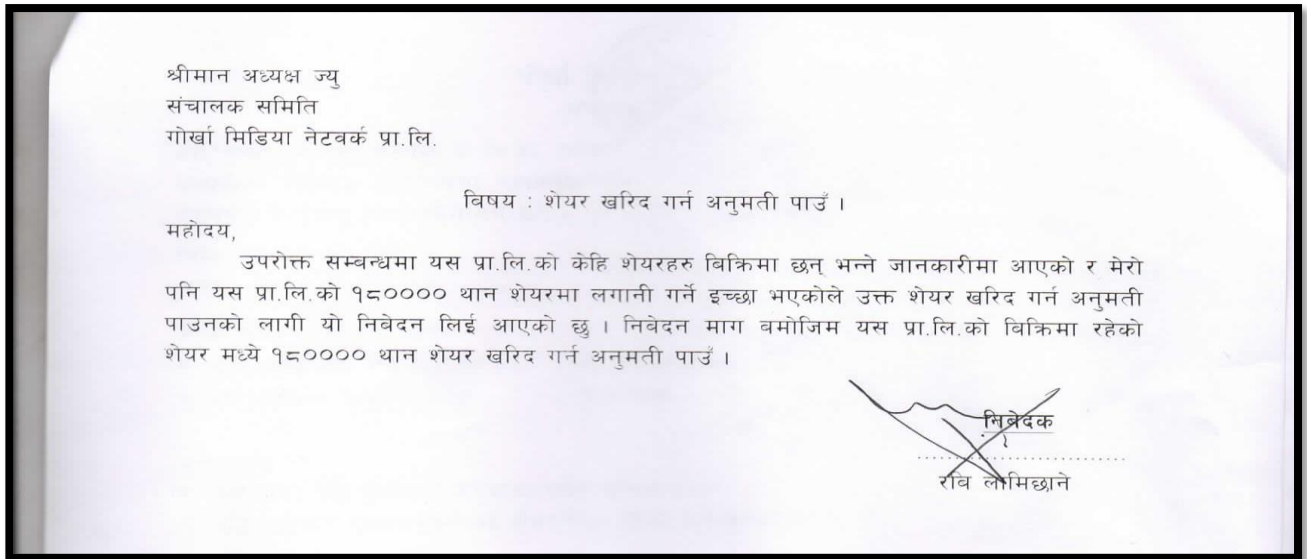 श्रीमान अध्यक्ष ज्यु
संचालक समिति
गोर्खा मिडिया नेटवर्क प्रा.लि.
बिषय : शेयर खरिद गर्न अनुमती पाउँ ।
महोदय,
उपरोक्त सम्बन्धमा यस प्रा.लि.को केहि शेयरहरु बिक्रिमा छन् भन्ने जानकारीमा आएको र मेरो
पनि यस प्रा.लि.को १८०००० थान शेयरमा लगानी गर्ने इच्छा भएकोले उक्त शेयर खरिद गर्न अनुमती
पाउनको लागी यो निबेदन लिई आएको छु । निबेदन माग बमोजिम यस प्रा.लि.को बिक्रिमा रहेको
शेयर मध्ये १८०००० थान शेयर खरिद गर्न अनुमती पाउँ ।
निबेदक
रवि लामिछाने